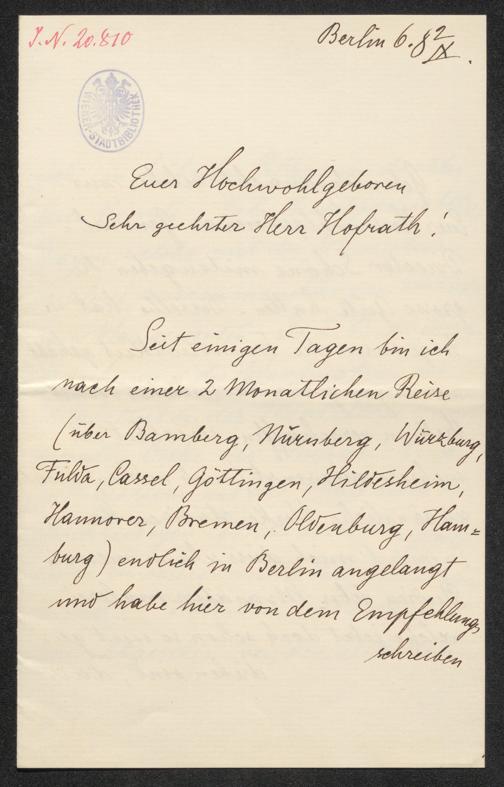 J. N. 20.810
Berlin 6. 82
IX.
WIENER-STADTBIBLIOTHEK
Euer Hochwohlgeboren
Sehr geehrter Herr Hofrath!
Seit einigen Tagen bin ich
nach einer 2 Monatlichen Reise
(über Bamberg, Nürnberg, Würzburg,
Fulda, Cassel, Göttingen, Hildesheim,
Hannover, Bremen, Oldenburg, Ham=
burg) endlich in Berlin angelangt
und habe hier von dem Empfehlungs
schreiben